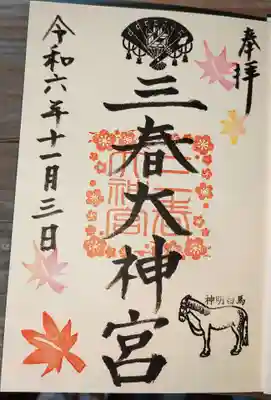 奉拝
三春大神宮
三春
大神宮
令和六年十一月三日
神明白馬